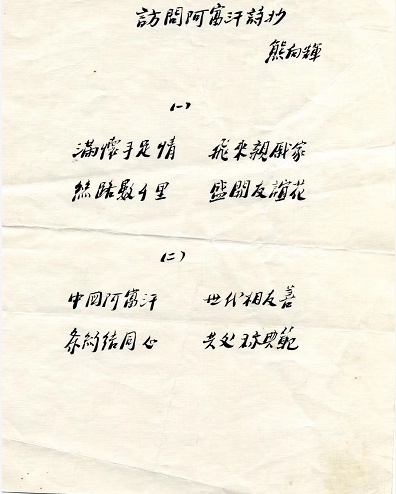 訪問阿富汗詩抄
熊向輝
(一)
滿懷手足情 飛來親戚家
絲路數千里 盛開友誼花
(二)
中国阿富汗 世代相友善
条約結同心 共处 典範